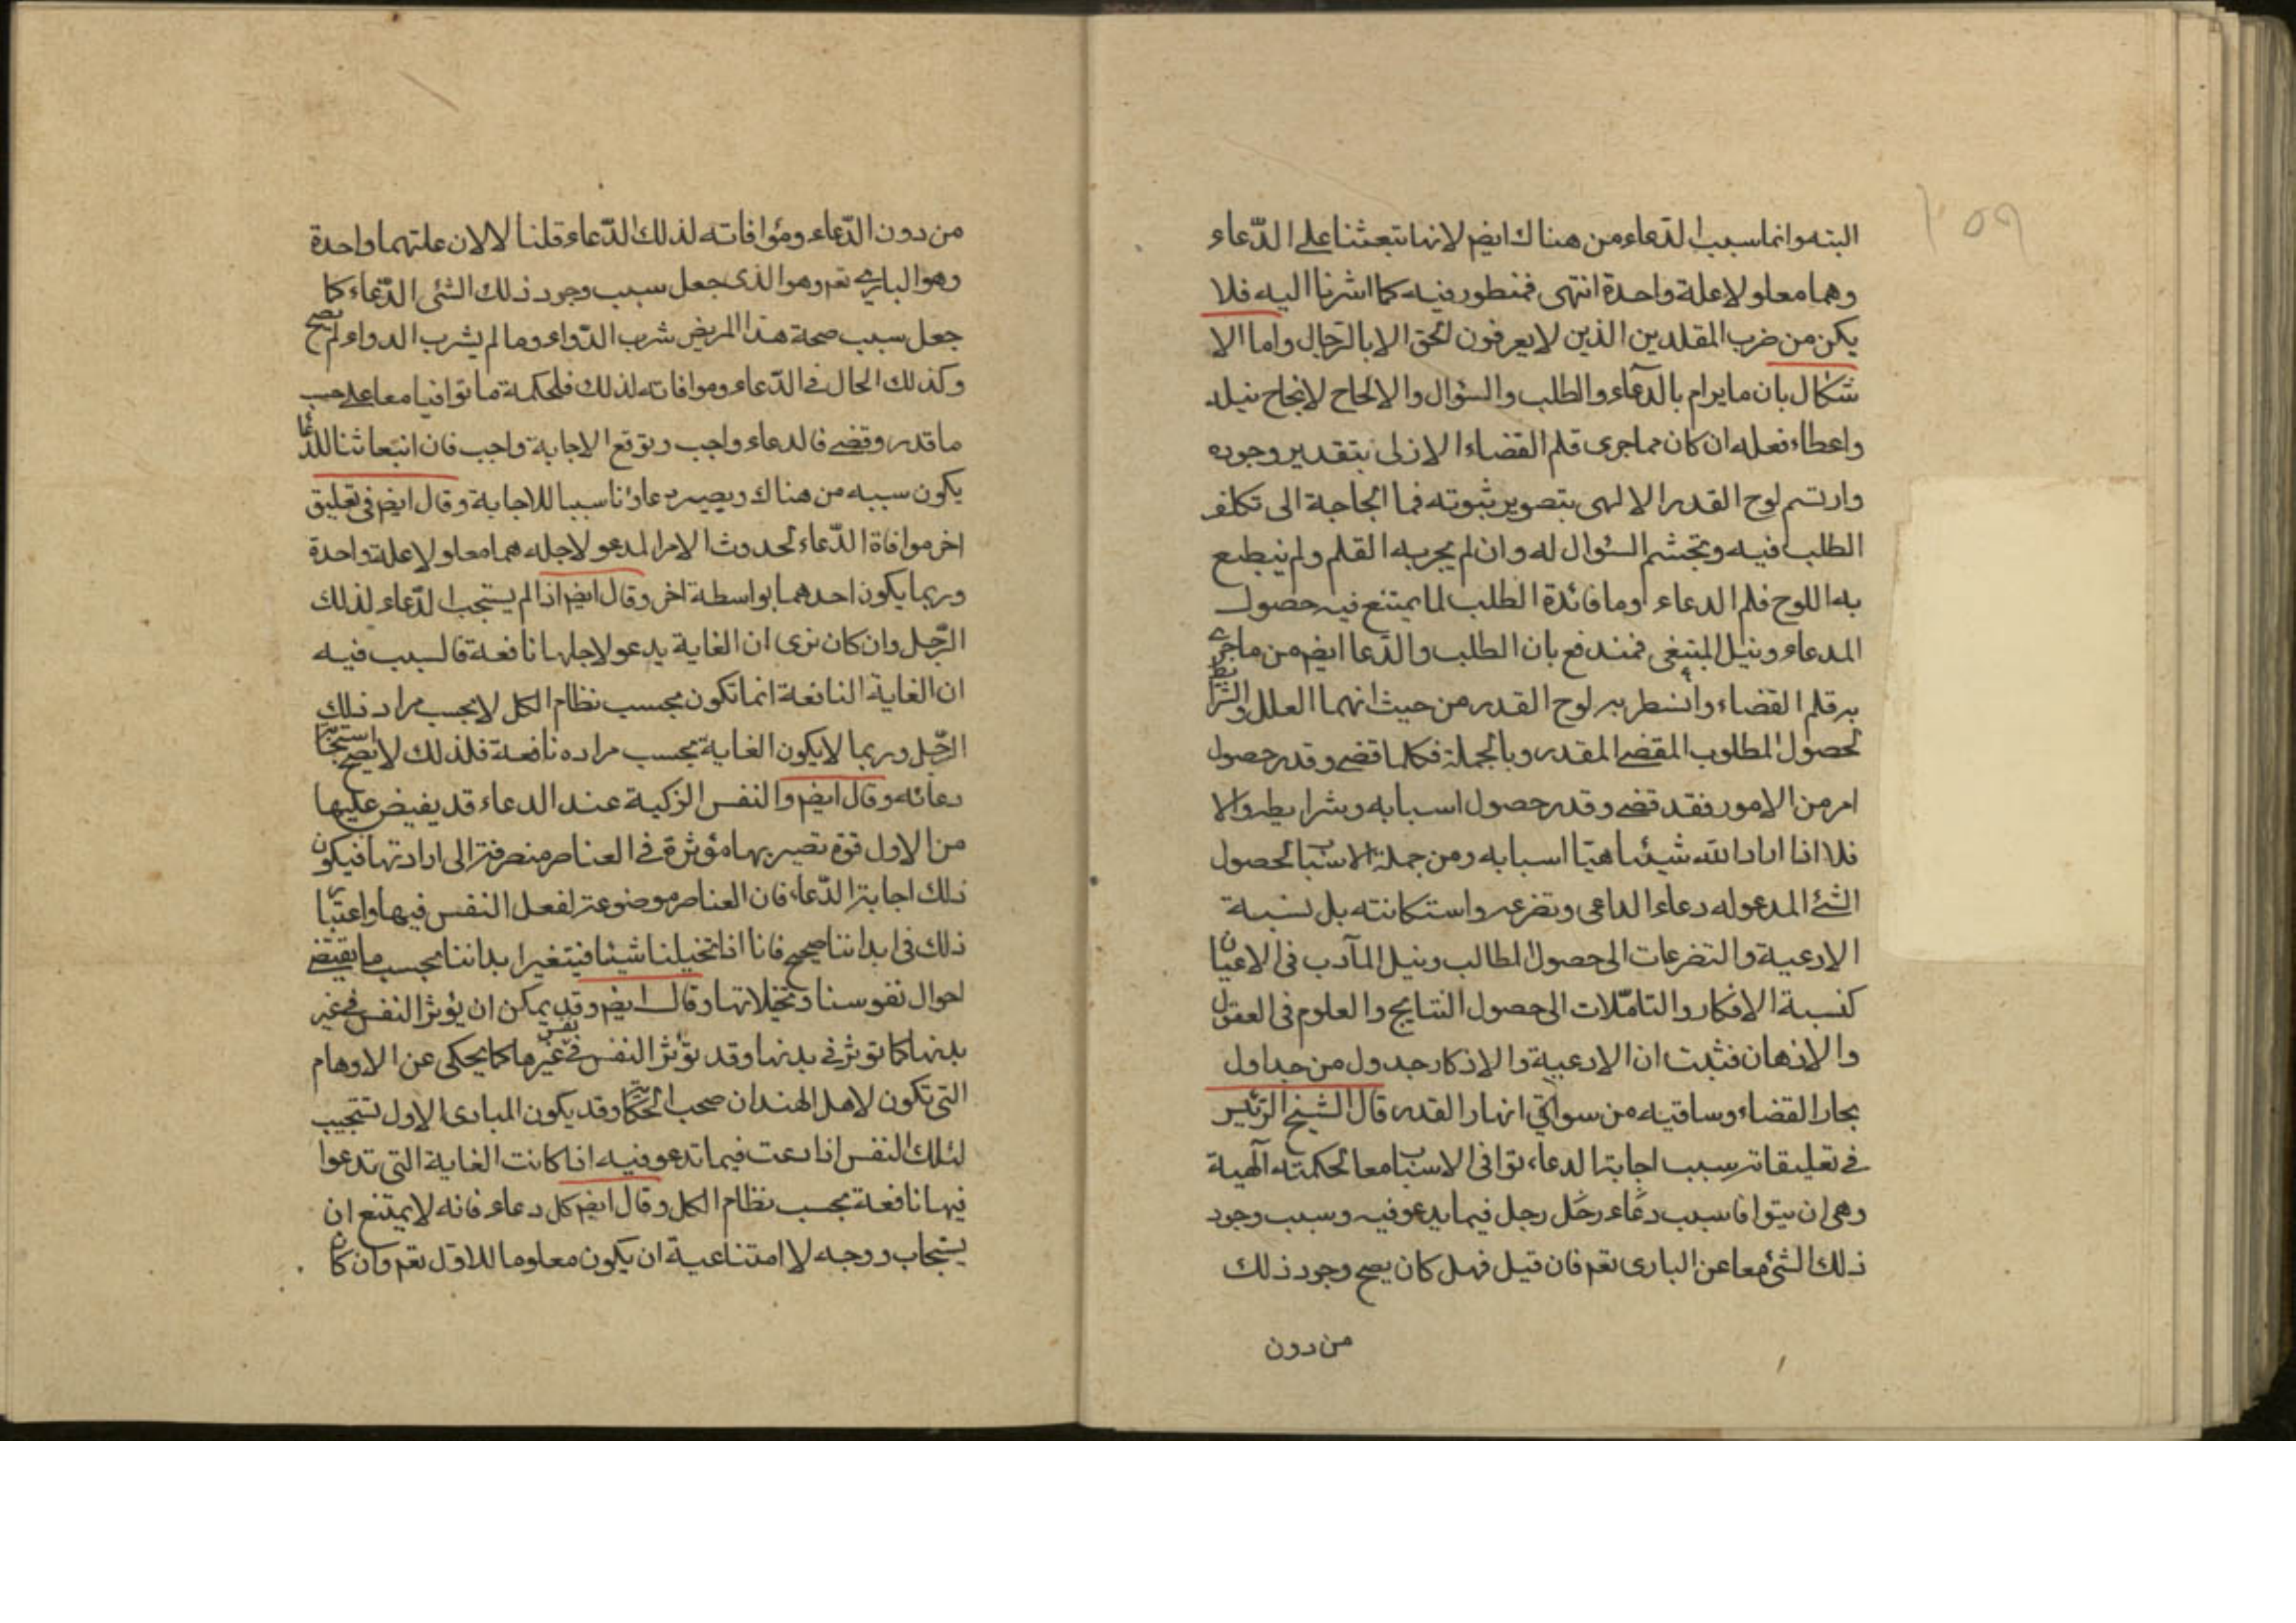 البته وانما سبب الدعاء من هناك ايضم لانها تبعثنا على الدّعاء
وهما معلولا علة واحدة انتهى فمنظور فيه كما اشرنا اليه فلا
يكن من ضرب المقلدين الذين لا يعرفون الحق الا بالرّجال واما الا
شكال بان ما يرام بالدّعاء والطلب والسّؤال والالحاح لانجاح نيله
واعطاء فعله ان كان مما جرى قلم القضاء الازلى بتقدير وجوده
وارتسم لوح القدر الالهى بتصوير ثبوته فما الحاجة الى تكلف
الطلب فيه وتجشم السّؤال له وان لم يجر به القلم ولم ينطبع
به اللوح فلم الدعاء وما فائدة الطلب لما يمتنع فيه حصول
المدعاء ونيل المبتغى فمندفع بان الطلب والدّعا ايضم من ما جرى
به قلم القضاء وانسطر به لوح القدر من حيث انهما العلل والشرايط
لحصول المطلوب المقضى المقدر وبالجملة فكلما قضى وقدر حصول
امر من الامور فقد قضى وقدر حصول اسبابه وشرايطه والا
فلا اذا اراد الله شيئا هيّا اسبابه ومن جملة الاسباب لحصول
الشئ المدعو له دعاء الداعى وتضرعه واستكانته بل نسبة
الادعية والتضرعات الى حصول المطالب ونيل المآرب فى الاعيان
كنسبة الافكار والتامّلات الى حصول النتايج والعلوم فى العقول
والاذهان فثبت ان الادعية والاذكار جدول من جداول
بحار القضاء وساقيه من سواقى انهار القدر قال الشيخ الرّئيس
فى تعليقاته سبب اجابة الدعاء توافى الاسباب معا لحكمته آلهية
وهى ان يتوافا سبب دعاء رجل رجل فيما يدعو فيه وسبب وجود
ذلك الشئ معا عن البارى تعم فان قيل فهل كان يصح وجود ذلك
من دون
من دون الدّعاء وموافاته لذلك الدّعاء قلنا لا لان علتهما واحدة
وهو البارى تعم وهو الذى جعل سبب وجود ذلك الشئ الدّعاء كما
جعل سبب صحة هذا المريض شرب الدّواء وما لم يشرب الدواء لم يصح
وكذلك الحال فى الدّعاء وموافاته لذلك فلحكمة ما توافيا معا على حسب
ما قدر وقضى فالدعاء واجب وتوقع الاجابة واجب فان انبعاثنا للدّعا
يكون سببه من هناك ويصير دعاؤنا سببا للاجابة وقال ايضم فى تعليق
اخر موافاة الدّعاء لحدوث الامر المدعو لاجله هما معلولا علة واحدة
وربما يكون احدهما بواسطة اخر وقال ايضم اذا لم يستجب الدّعاء لذلك
الرّجل وان كان نرى ان الغاية يدعو لاجلها نافعة فالسبب فيه
ان الغاية النافعة انما تكون بحسب نظام الكل لا بحسب مراد ذلك
الرّجل وربما لا يكون الغاية بحسب مراده نافعة فلذلك لا يصح استجابة
دعائه وقال ايضم والنفس الزكية عند الدعاء قد يفيض عليها
من الاول قوة تصير بها مؤثرة فى العناصر منصرفة الى ارادتها فيكون
ذلك اجابة الدّعاء فان العناصر موضوعة لفعل النفس فيها واعتبار
ذلك فى ابداننا صحيح فانا اذا تخيلنا شيئا فيتغير ابداننا بحسب ما يقتضى
احوال نفوسنا وتخيلاتها وقال ايضم وقد يمكن ان يؤثر النفس فى غير
بدنها كما تؤثر فى بدنها وقد تؤثر النفس فى نفس غيرها كما يحكى عن الاوهام
التى تكون لاهل الهند ان صحب الحكاية وقد يكون المبادى الاول تستجيب
لتلك النفس اذا دعت فيما تدعو فيه اذا كانت الغاية التى تدعوا
فيها نافعة بحسب نظام الكل وقال ايضم كل دعاء فانه لا يمتنع ان
يستجاب ووجه لا امتناعية ان يكون معلوما للاول تعم وان كان